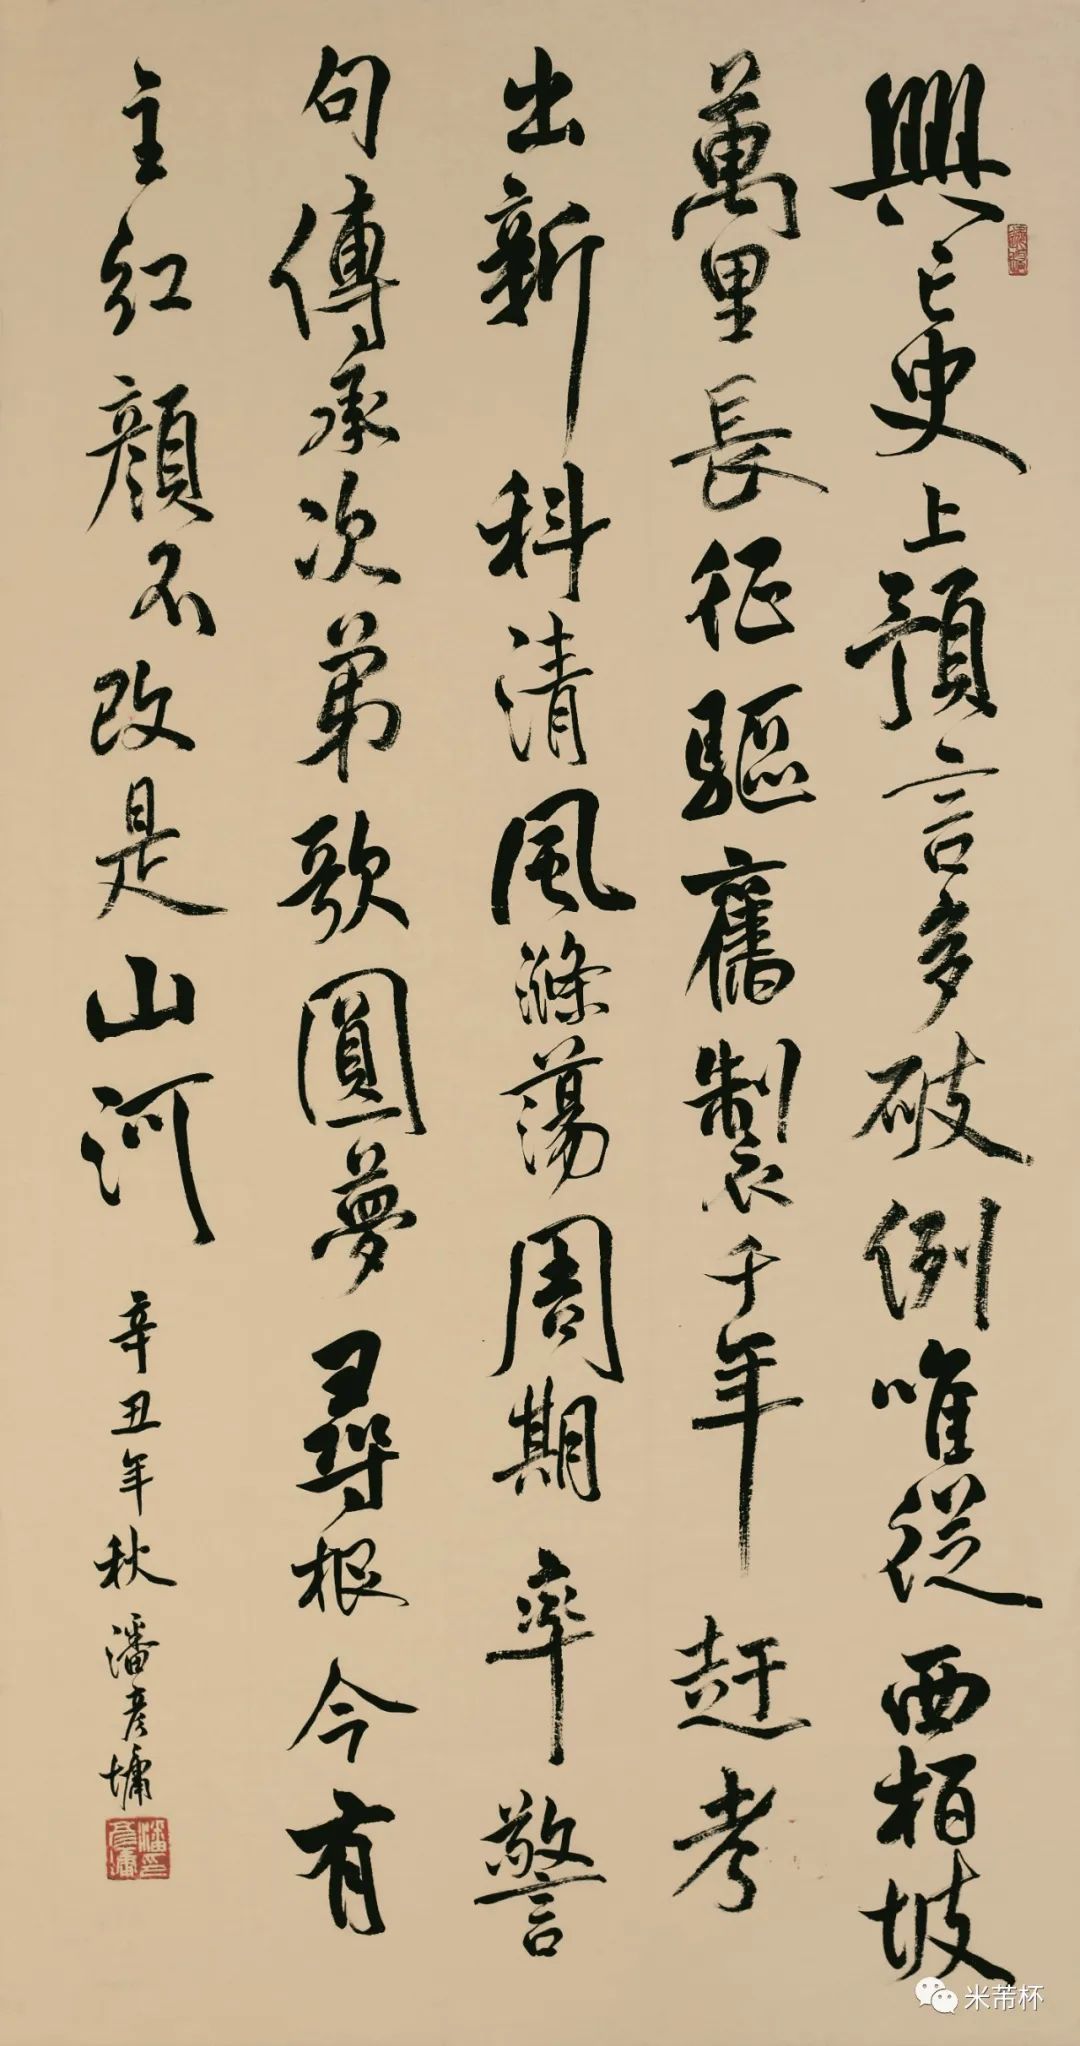 興亡史上預言多破例唯從西柏坡
萬里長征驅舊製千年赶考
出新科清風滌蕩周期率警
句傳承次弟歌圓夢尋根今有
主紅顔不改是山河
辛丑年秋潘彦墉
米芾杯